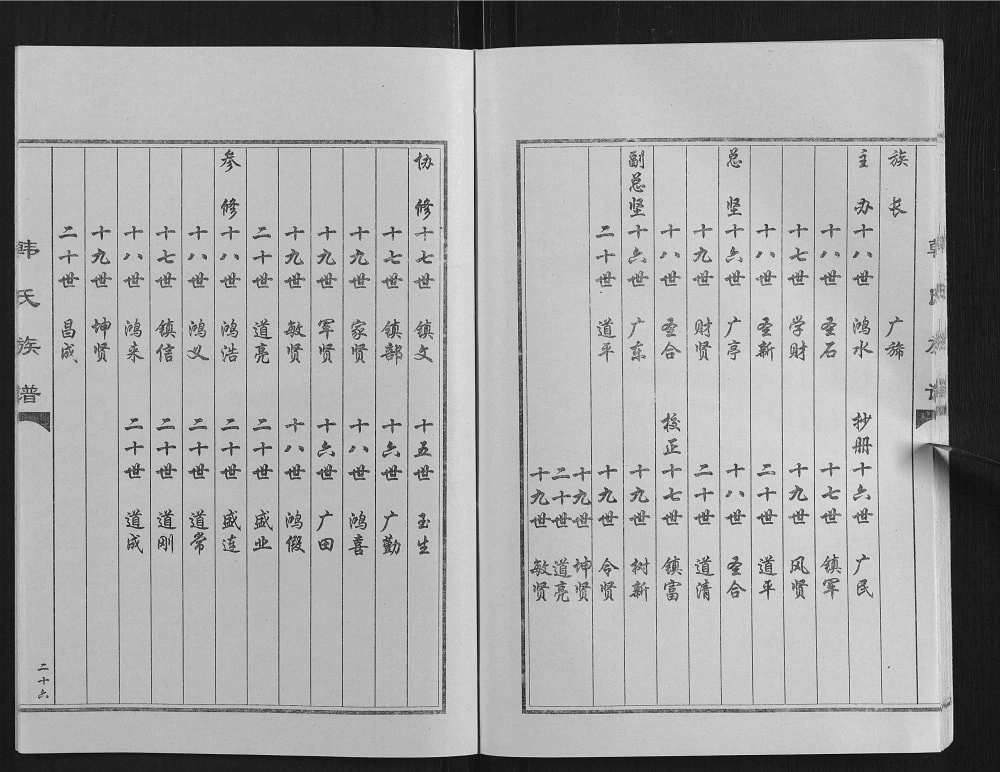 韩氏族谱
族长 广
主办 十八世 鸿水 抄册 十六世 广民
十八世 圣石 十七世 镇军
十七世 学财 十九世 风贤
十八世 圣新 二十世 道平
总坚 十六世 广亭 十八世 圣合
十九世 财贤 二十世 道清
十八世 圣合 校正 十七世 镇富
副总坚 十六世 广东 十九世 树新
二十世 道平 十九世 令贤
十九世 坤贤
二十世 道亮
十九世 敏贤
协修 十七世 镇文 十五世 玉生
十七世 镇部 十六世 广勤
十九世 家贤 十八世 鸿喜
十九世 军贤 十六世 广田
十九世 敏贤 十八世 鸿假
二十世 道亮 二十世 盛业
参修 十八世 鸿浩 二十世 盛连
十八世 鸿义 二十世 道常
十七世 镇信 二十世 道刚
十八世 鸿来 二十世 道成
十九世 坤贤
二十世 昌成
韩氏族谱
二十六